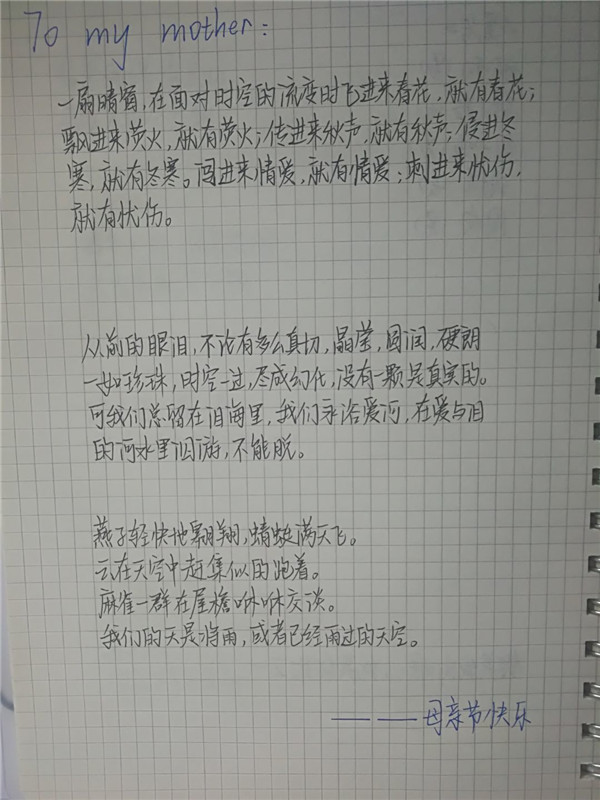 To my mother:
一扇晴窗,在面对时空的流变时飞进来春花,就有春花;
飘进来萤火,就有萤火;传进来秋声,就有秋声;侵进冬
寒,就有冬寒。闯进来情爱,就有情爱;刺进来忧伤,
就有忧伤。
从前的眼泪,不论有多么真切,晶莹,圆润,硬朗
一如珍珠,时空一过,尽成幻化,没有一颗是真实的。
可我们总留在泪海里,我们永浴爱河,在爱与泪
的河水里泅游,不能脱。
燕子轻快地翱翔,蜻蜓满天飞。
云在天空中赶集似的跑着。
麻雀一群在屋檐咻咻交谈。
我们的天是将雨,或者已经雨过的天空。
——母亲节快乐